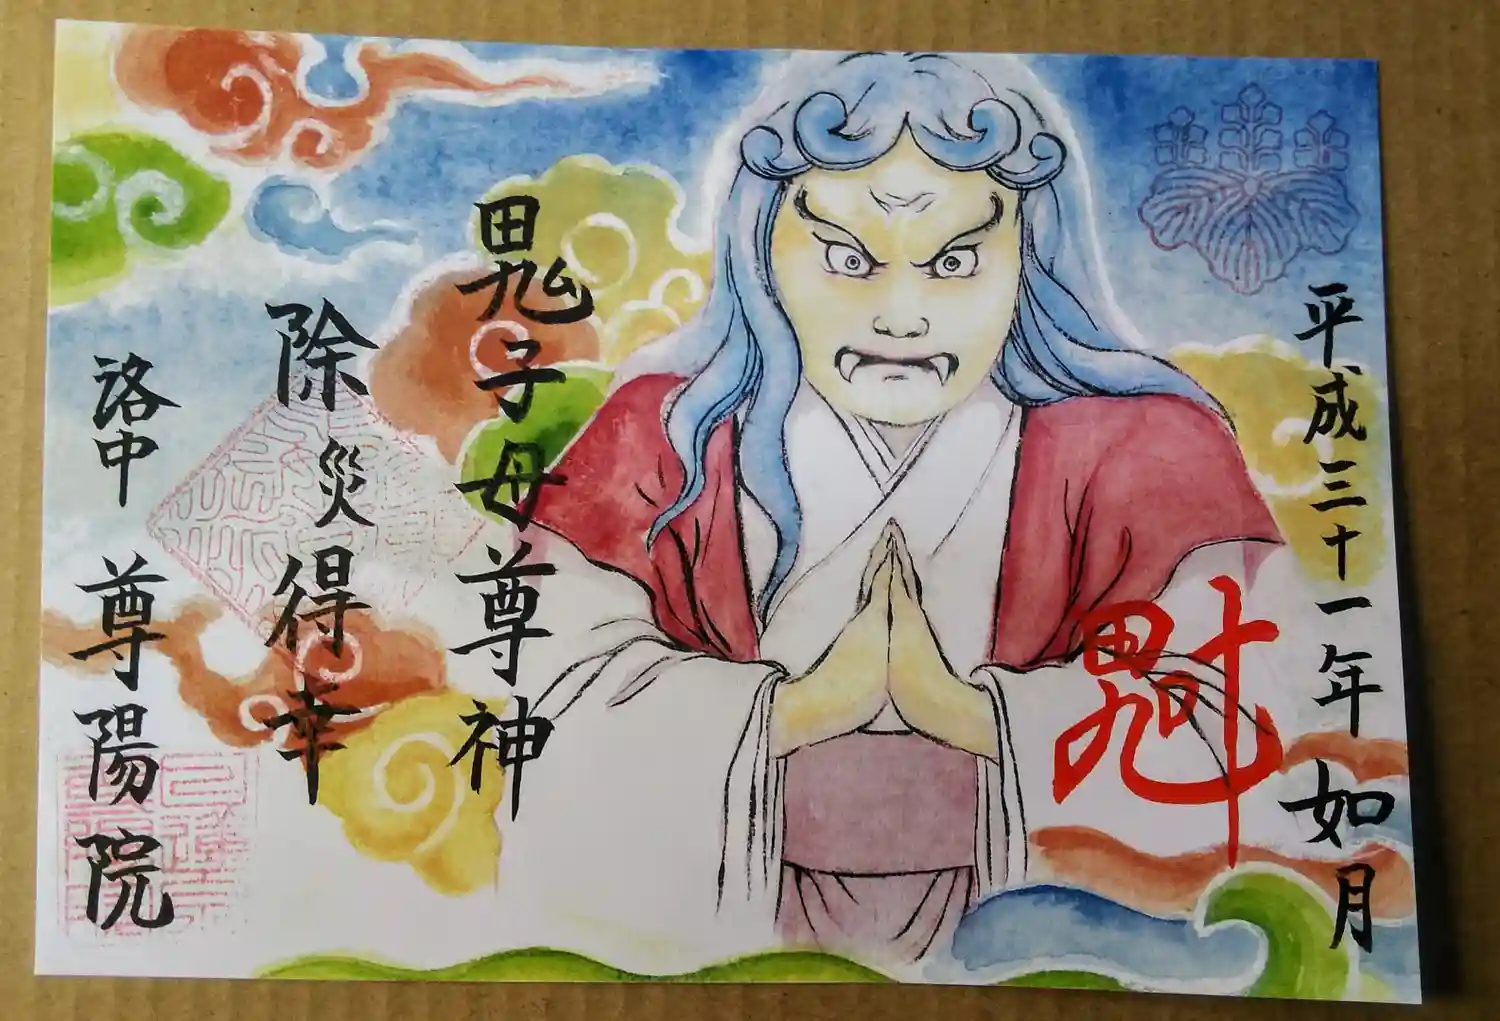 平成三十一年如月
魁
鬼子母尊神
除災得幸
洛中 尊陽院